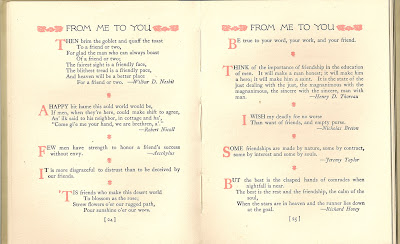 FROM ME TO YOU
THEN brim the goblet and quaff the toast
To a friend or two,
For glad the man who can always boast
Of a friend or two;
The fairest sight is a friendly face,
The blithest tread is a friendly pace,
And heaven will be a better place
For a friend or two. —Wilbur D. Nesbit
A HAPPY bit hame this auld world would be,
If men, when they're here, could make shift to agree,
An' ilk said to his neighbor, in cottage and ha',
"Come gi'e me your hand, we are brethren, a'."
—Robert Nicoll
FEW men have strength to honor a friend's success
without envy. —Aeschylus
IT is more disgraceful to distrust than to be deceived by
our friends.
'TIS friends who make this desert world
To blossom as the rose;
Strew flowers o'er our rugged path,
Pour sunshine o'er our woes.
[24]
FROM ME TO YOU
BE true to your word, your work, and your friend.
THINK of the importance of friendship in the education
of men. It will make a man honest; it will make him
a hero; it will make him a saint. It is the state of the
just dealing with the just, the magnanimous with the
magnanimous, the sincere with the sincere, man with
man. —Henry D. Thoreau
I WISH my deadly foe no worse
Than want of friends, and empty purse.
—Nicholas Breton
SOME friendships are made by nature, some by contract,
some by interest and some by souls.
—Jeremy Taylor
BUT the best is the clasped hands of comrades when
nightfall is near,
The best is the rest and the friendship, the calm of the
soul,
When the stars are in heaven and the runner lies down
at the goal. —Richard Hovey
[25]